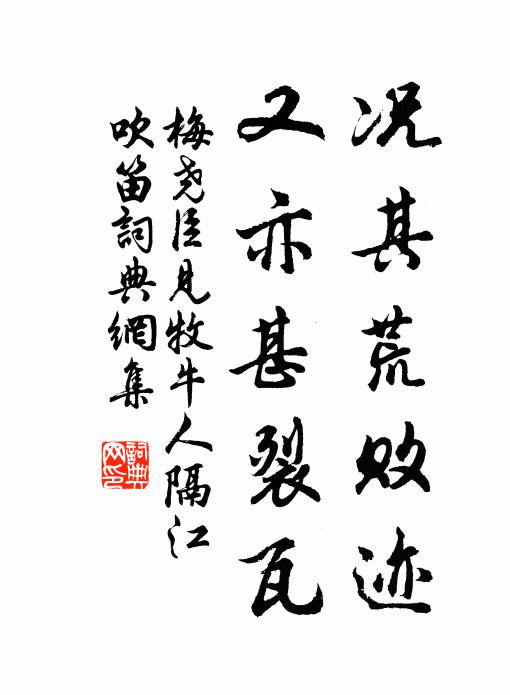 况其荒败迹
又亦甚裂瓦
梅尧臣見牧牛人隔江
吹笛詞典網集
詞典
网印